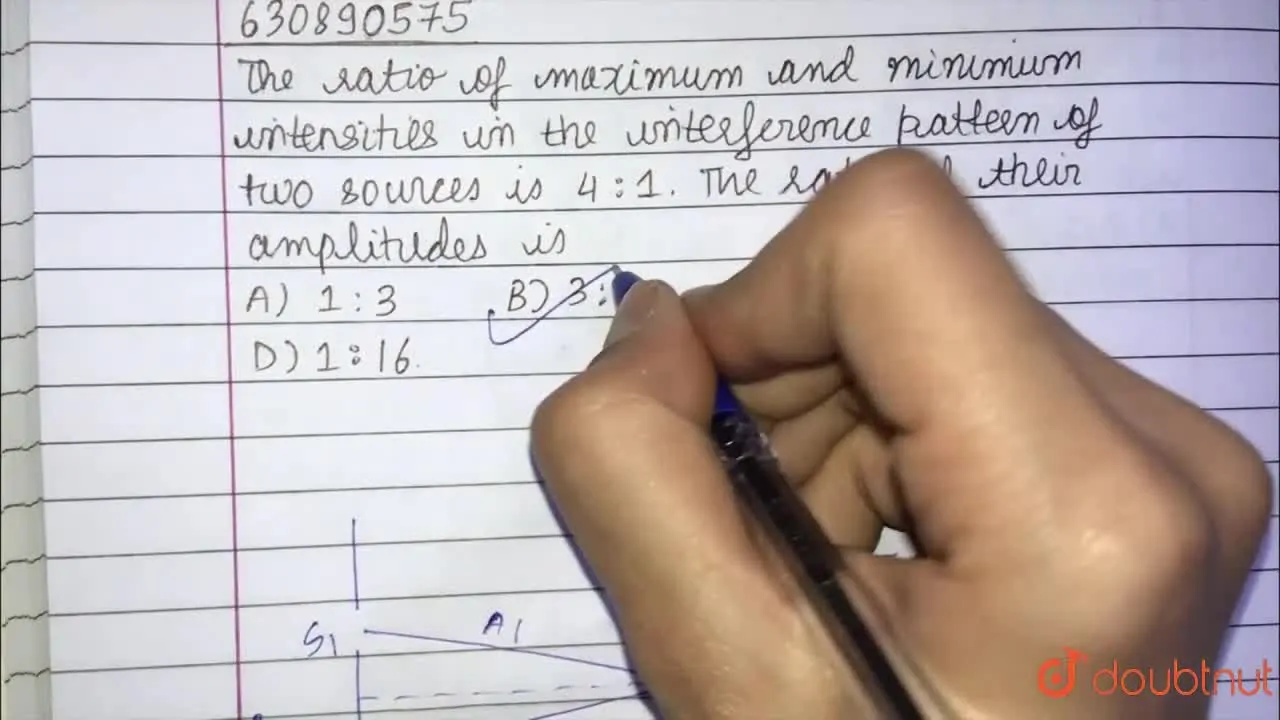 630890575
The ratio of maximum and minimum
intensities in the interference pattern of
two sources is 4:1. The their
amplitudes is
A) 1:3 B) 3:
D) 1:16.
S1 A1
doubtnut